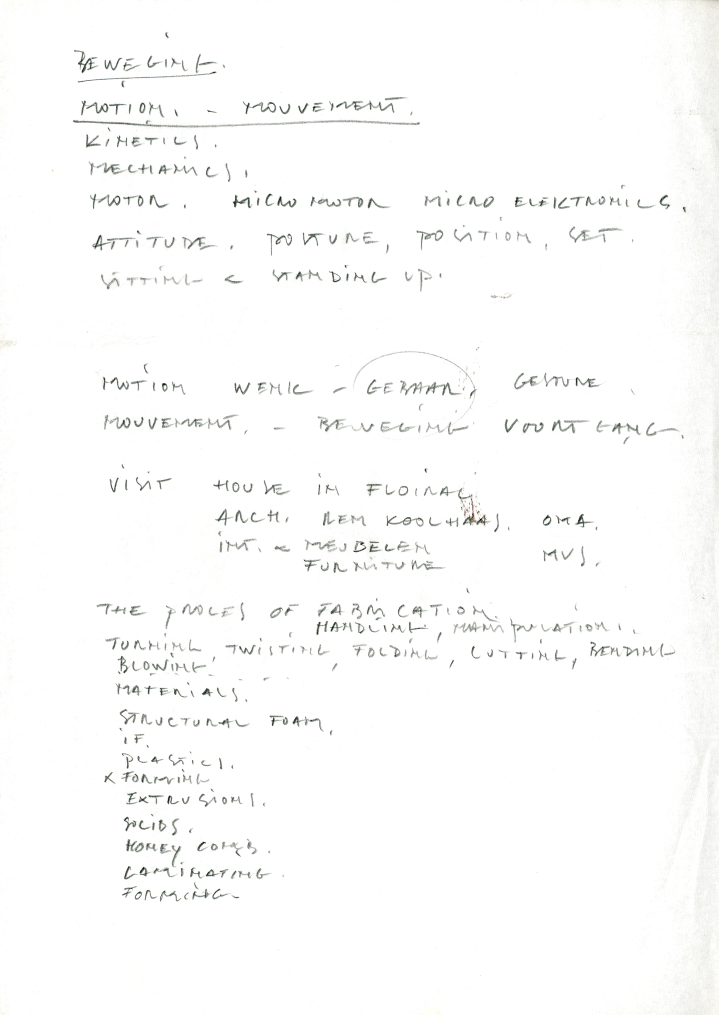 BEWEGING.
MOTION. - MOUVEMENT.
KINETICS.
MECHANICS.
MOTOR. MICRO MOTOR MICRO ELEKTRONICS.
ATTITUDE. POSTURE, POSITION, SET.
SITTING < STANDING UP.
MOTION WENK - GEBAAR, GESTURE
MOUVEMENT, - BEWEGING VOORTGANG.
VISIT HOUSE IN FLOIRAC
ARCH. REM KOOLHAAS. OMA.
INT. & MEUBELEN MVS.
FURNITURE
THE PROCES OF FABRICATION.
HANDLING, MANIPULATION.
TURNING, TWISTING, FOLDING, CUTTING, BENDING
BLOWING.
MATERIALS.
STRUCTURAL FOAM.
IF.
PLASTICS.
< FORMING
EXTRUSIONS.
SOLIDS.
HONEY COMB.
LAMINATING.
FORMING.